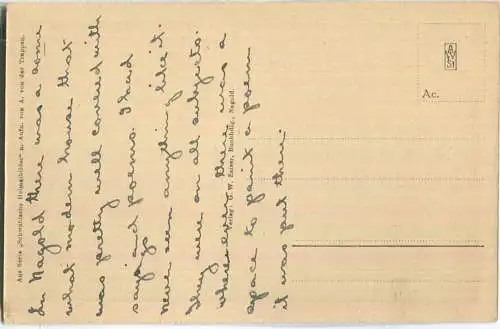 Aus Serie „Schwäbische Heimatbilder" n. Aufn. von A. von der Trappen.
In Nagold there was a some
what modern house that
was pretty well covered with
sayings and poems. I had
never seen anything like it.
They were on all subjects.
wherever there was a
space to paint a poem
it was put there.
Verlag: G. W. Zaiser, Buchhdlg., Nagold.
Ac.